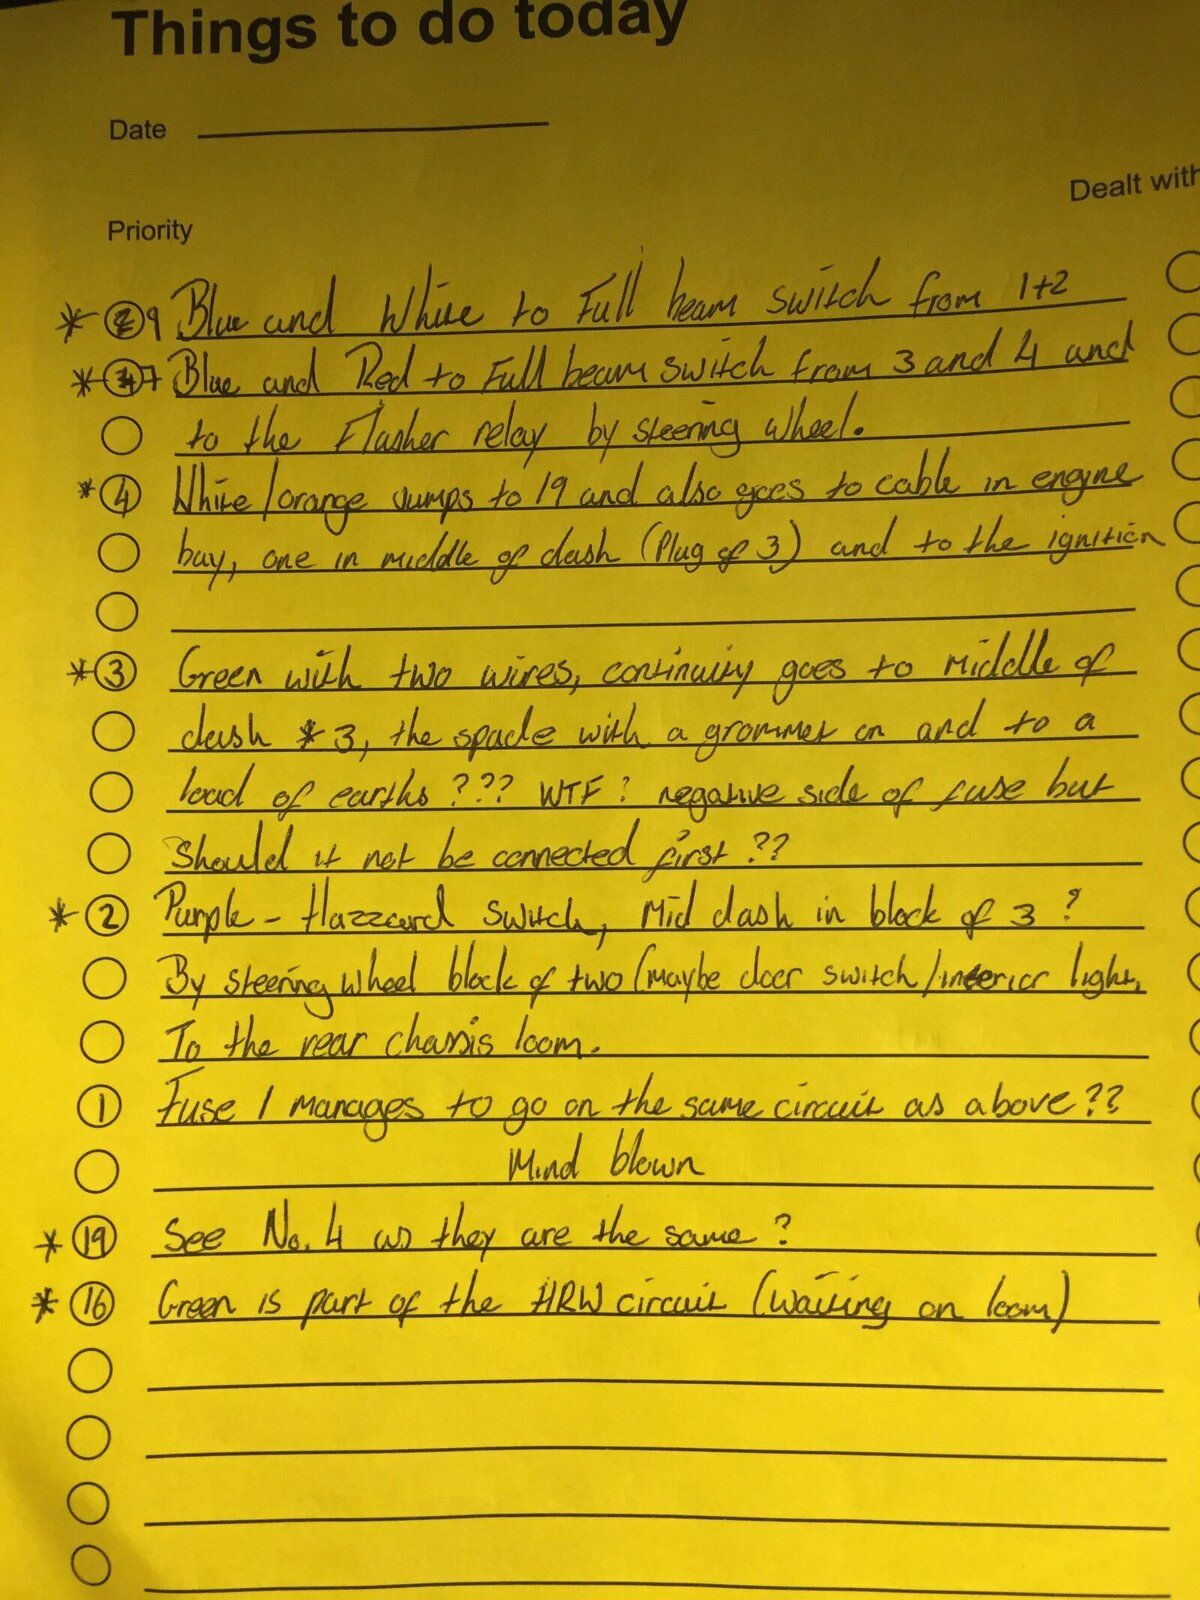 Things to do today
Date
Dealt with
Priority
* 9 Blue and White to Full beam switch from 1+2
* 7 Blue and Red to Full beam switch from 3 and 4 and
to the Flasher relay by steering wheel.
* 4 White/orange Jumps to 19 and also goes to cable in engine
bay, one in middle of dash (Plug of 3) and to the ignition
* 3 Green with two wires, continuity goes to middle of
dash * 3, the spade with a grommet on and to a
load of earths ??? WTF? negative side of fuse but
Should it not be connected first ??
* 2 Purple - Hazzard Switch, Mid dash in block of 3 ?
By steering wheel block of two (maybe door switch/interior light,
To the rear chassis loom.
1 Fuse 1 manages to go on the same circuit as above??
Mind blown
* 19 See No. 4 as they are the same ?
* 16 Green is part of the HRW circuit (Waiting on loom)